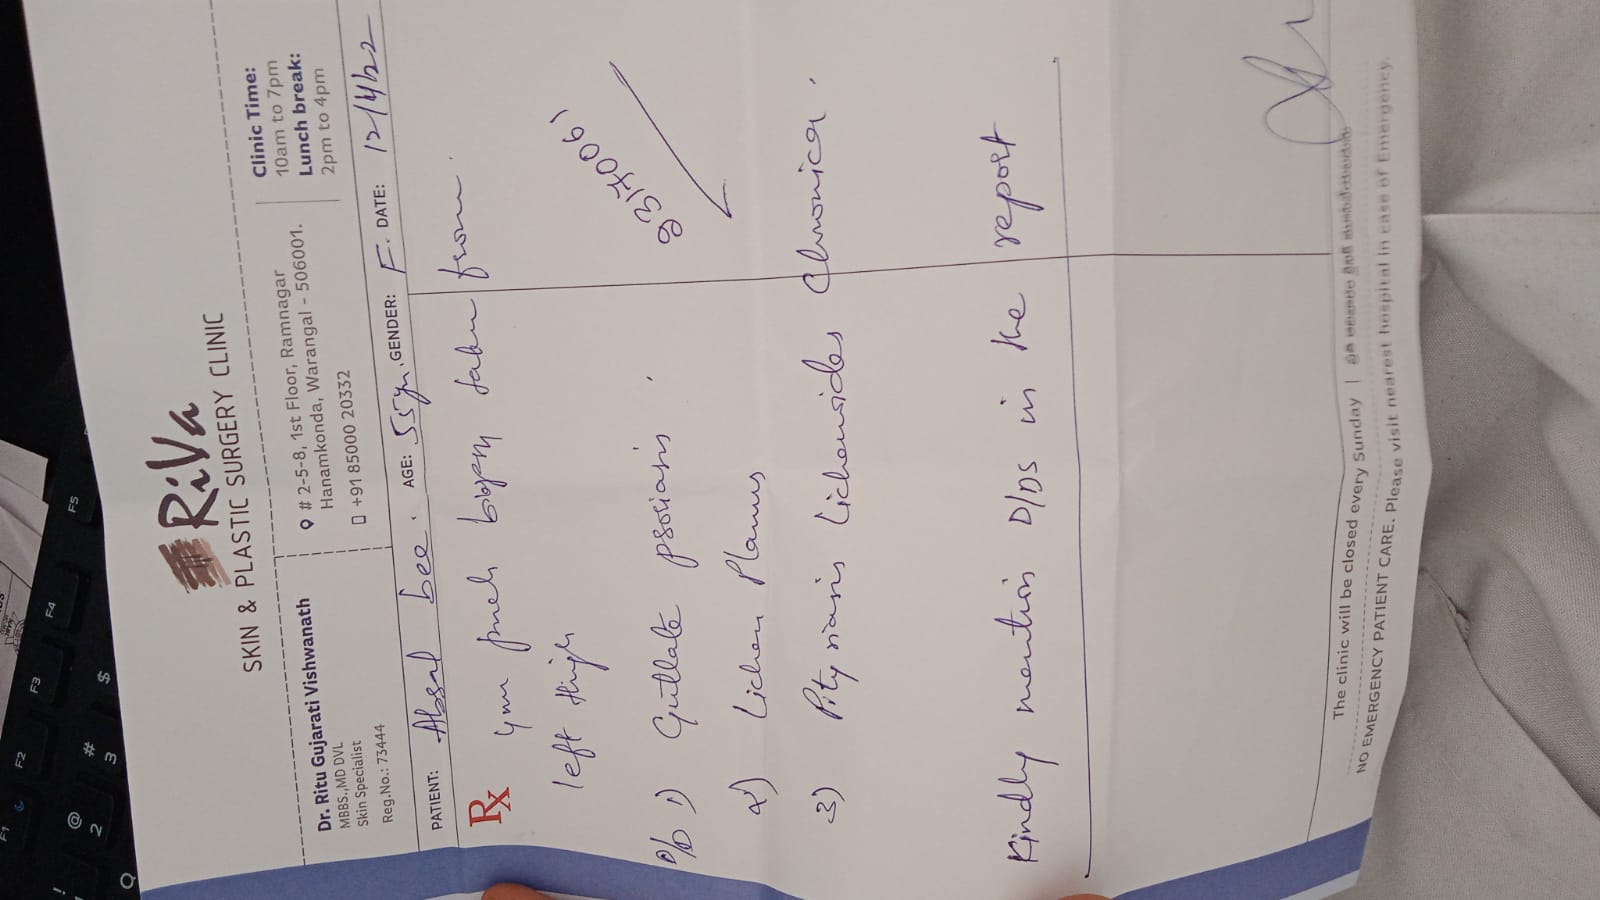 RiVa
SKIN & PLASTIC SURGERY CLINIC
Dr. Ritu Gujarati Vishwanath
MBBS.,MD DVL
Skin Specialist
Reg.No.: 73444
# 2-5-8, 1st Floor, Ramnagar
Hanamkonda, Warangal - 506001.
+91 85000 20332
Clinic Time:
10am to 7pm
Lunch break:
2pm to 4pm
PATIENT: bee. AGE: 55yr. GENDER: F. DATE: 12/4/22
Rx 4mm punch biopsy taken from
left thigh
1) Guttate psoriasis.
2) Lichen Planus
3) Pityriasis Lichenoides Chronica.
Kindly mention D/Ds in the report
The clinic will be closed every Sunday |
NO EMERGENCY PATIENT CARE. Please visit nearest hospital in case of Emergency.
F1
F2
F3
F4
F5
!
@
2
#
3
$
Q